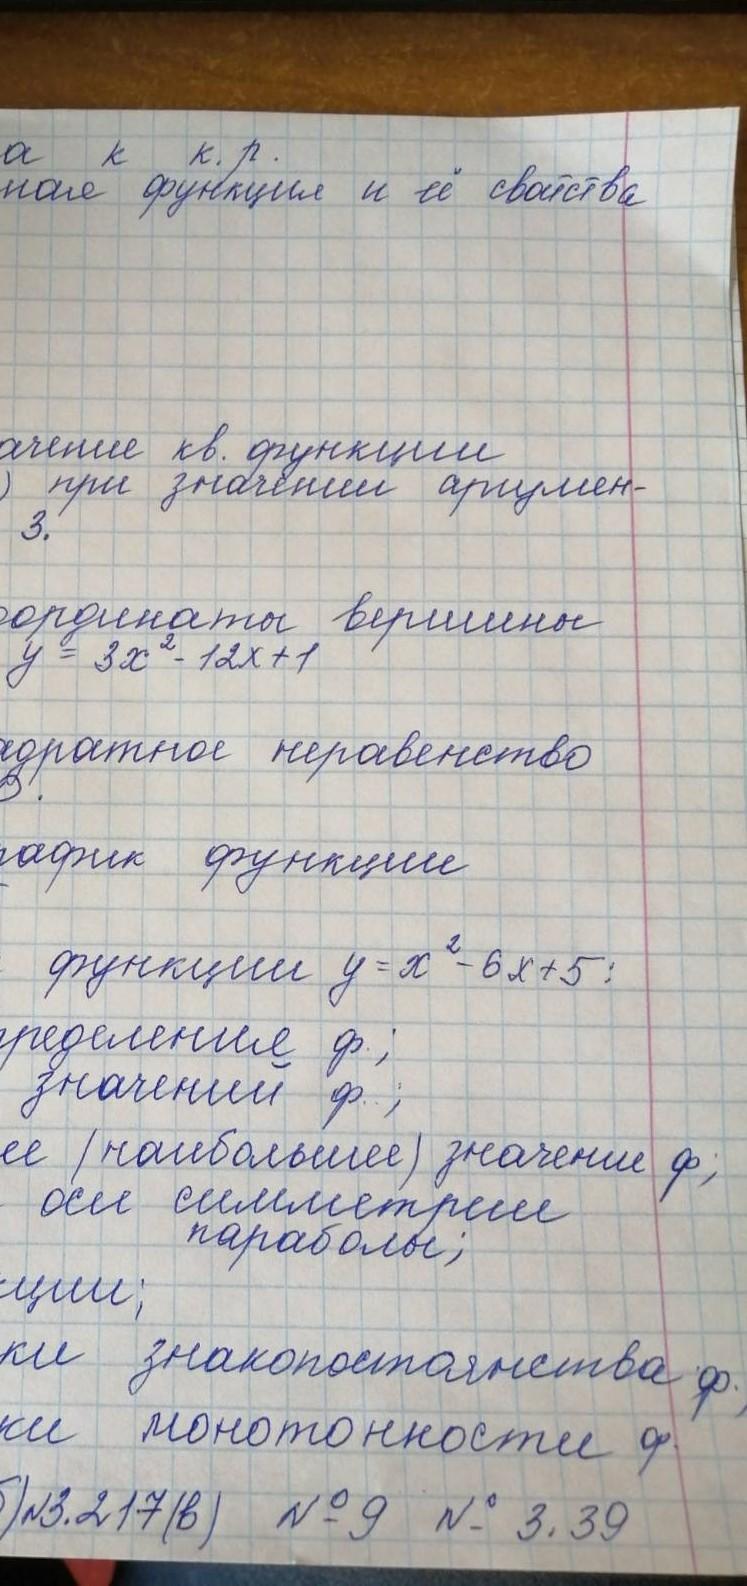 а к к.р.
ная функция и её свойства
ачение кв. функции
) при значении аргумен-
3.
оординаты вершины
y = 3x² - 12x + 1
адратное неравенство
рафик функции
функции y = x² - 6x + 5:
пределения ф.;
значений ф.;
ее (наибольшее) значение ф;
оси симметрии
параболы;
кции;
ки знакопостоянства ф.,
ки монотонности ф.
б) №3.217(в) №9 № 3.39